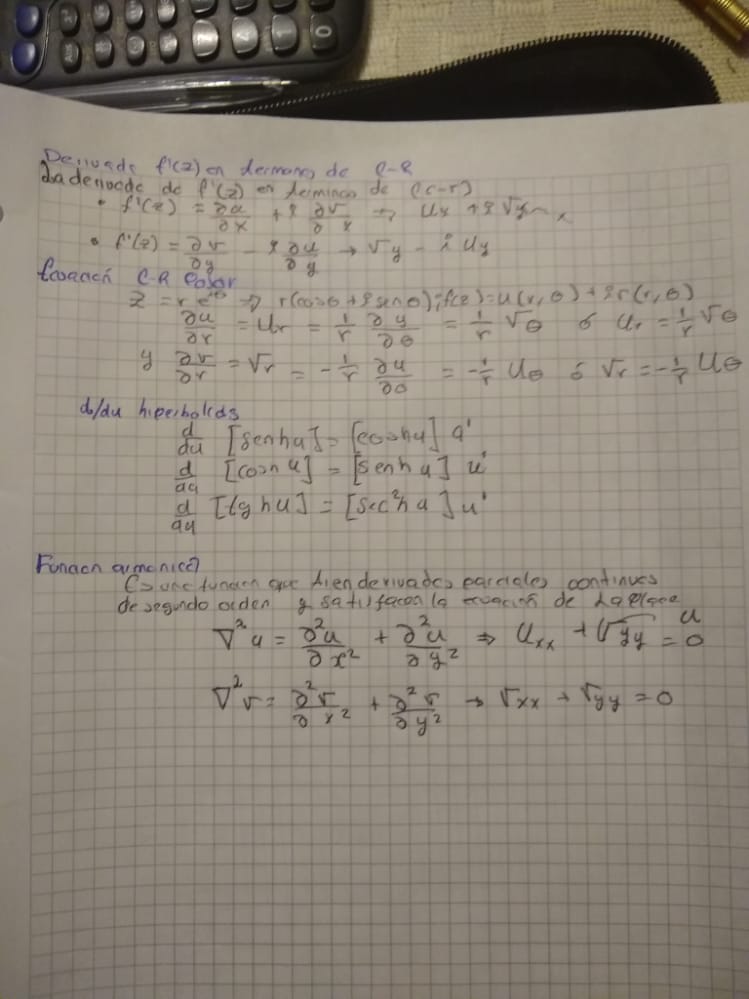 Derivada f'(z) en terminos de C-R
La derivada de f'(z) en terminos de (C-r)
• f'(z) = ∂u/∂x + i ∂v/∂x → Ux + i Vx
• f'(z) = ∂v/∂y - i ∂u/∂y → Vy - i Uy
Ecuación C-R Polar
z = r e^{iθ} ⇒ r(cosθ + i senθ); f(z) = u(r, θ) + i v(r, θ)
∂u/∂r = Ur = 1/r ∂y/∂θ = 1/r Vθ ó Ur = 1/r Vθ
y ∂v/∂r = Vr = -1/r ∂u/∂θ = -1/r Uθ ó Vr = -1/r Uθ
d/du hiperbolicas
d/du [senhu] = [coshu] u'
d/du [coshu] = [senhu] u'
d/du [tghu] = [sec²hu] u'
Funcion armonica
Es una funcion que tien derivadas parciales continues
de segundo orden y satisfacen la ecuación de LaPlace
∇²u = ∂²u/∂x² + ∂²u/∂y² ⇒ Uxx + Uyy = 0
∇²v = ∂²v/∂x² + ∂²v/∂y² → Vxx + Vyy = 0